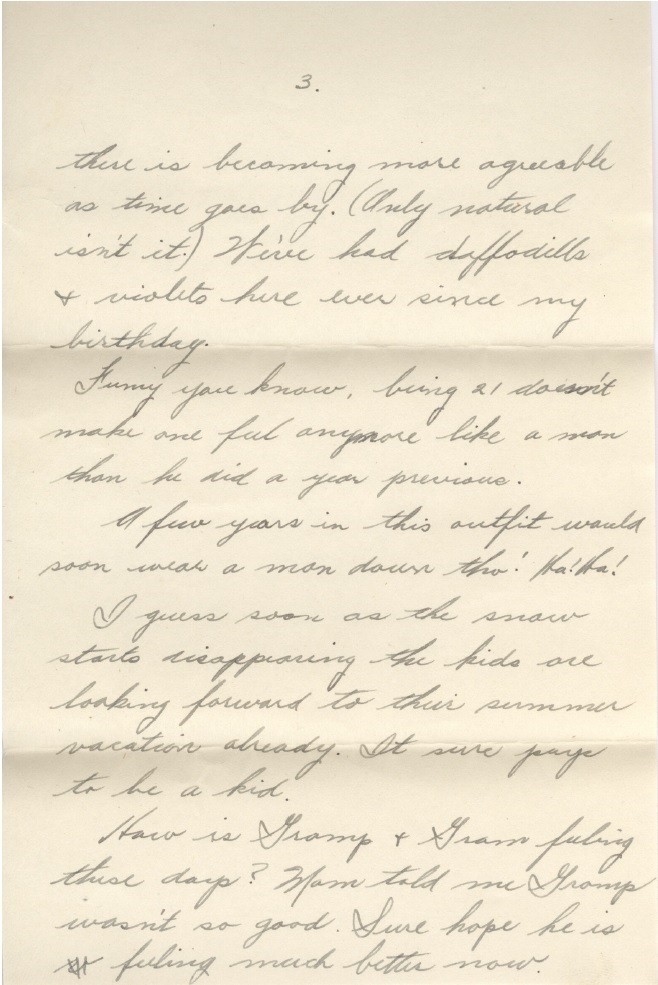 3.
there is becoming more agreeable
as time goes by. (Only natural
isn't it.) We've had daffodills
& violets here ever since my
birthday.
Funny you know, being 21 doesn't
make one feel anymore like a man
than he did a year previous.
A few years in this outfit would
soon wear a man down tho'! Ha! Ha!
I guess soon as the snow
starts disappearing the kids are
looking forward to their summer
vacation already. It sure pays
to be a kid.
How is Gramp & Gram feeling
these days? Mom told me Gramp
wasn't so good. Sure hope he is
feeling much better now.